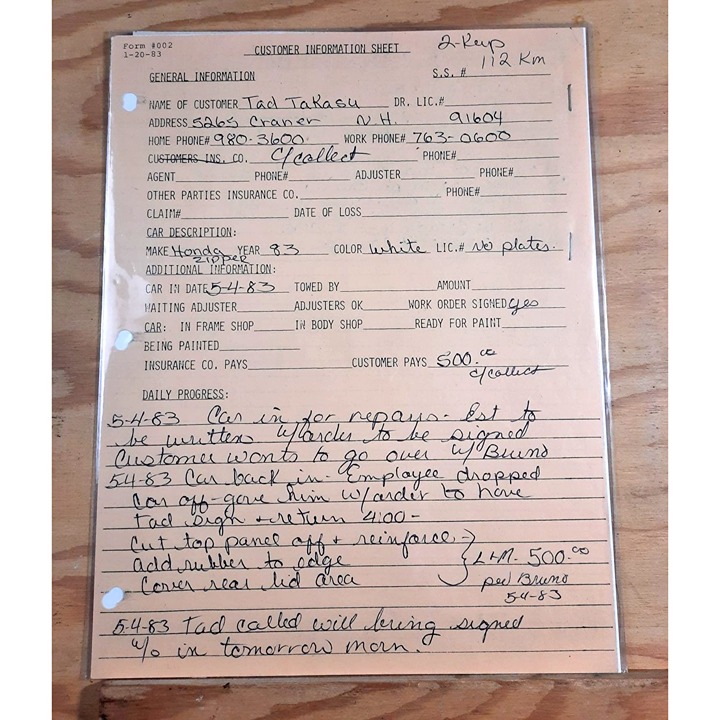 Form #002
1-20-83
CUSTOMER INFORMATION SHEET
2-Keys
112 Km
GENERAL INFORMATION S.S. #
NAME OF CUSTOMER Tad Takasu DR. LIC.#
ADDRESS 5265 Craner N.H. 91604
HOME PHONE# 980-3600 WORK PHONE# 763-0600
CUSTOMERS INS. CO. C/collect PHONE#
AGENT PHONE# ADJUSTER PHONE#
OTHER PARTIES INSURANCE CO. PHONE#
CLAIM# DATE OF LOSS
CAR DESCRIPTION:
MAKE Honda YEAR 83 COLOR white LIC.# No plates.
zipper
ADDITIONAL INFORMATION:
CAR IN DATE 5-4-83 TOWED BY AMOUNT
WAITING ADJUSTER ADJUSTERS OK WORK ORDER SIGNED yes
CAR: IN FRAME SHOP IN BODY SHOP READY FOR PAINT
BEING PAINTED
INSURANCE CO. PAYS CUSTOMER PAYS 500.00
c/collect
DAILY PROGRESS:
5-4-83 Car in for repairs- Est to
be written w/order to be signed
Customer wants to go over w/ Bruno
5-4-83 Car back in- Employee dropped
Car off- gave him w/order to have
Tad sign + return 4:00-
Cut top panel off + reinforce-
add rubber to edge L+M- 500.00
Cover rear lid area per Bruno
5-4-83
5-4-83 Tad called will bring signed
w/o in tomorrow morn.